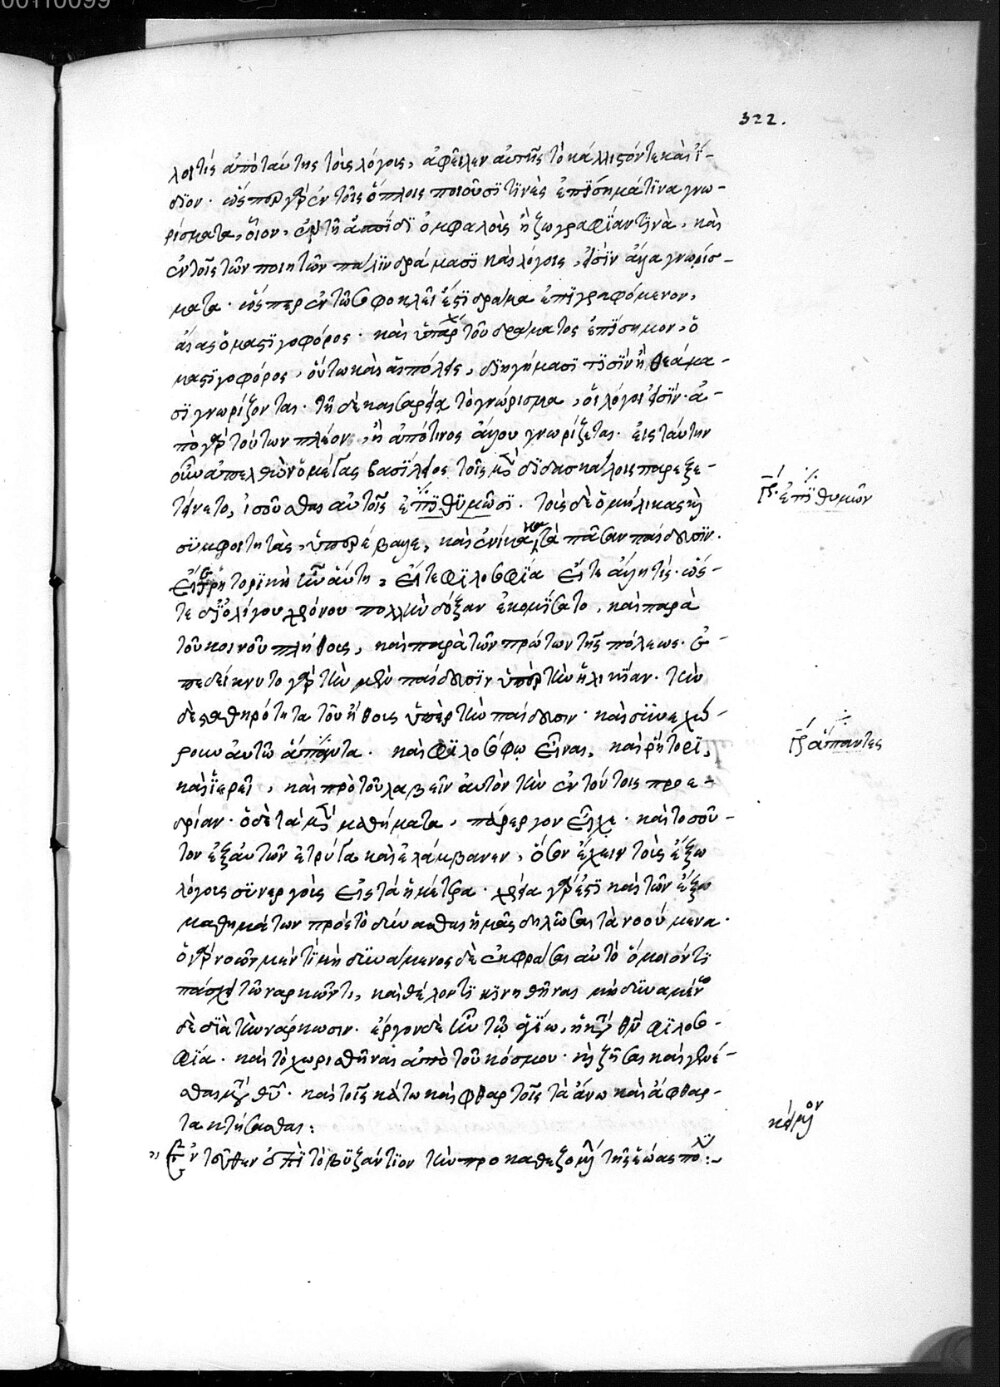 322.
λοιτὶς ἀπὸ ταύτης τοὺς λόγους, ἀφεῖλεν αὐτῆς τὸ κάλλιστόν τε καὶ ἴ-
διον. ὥσπερ γὰρ ἐν τοῖς ὅπλοις ποιοῦσί τινὲς ἐπίσημά τινα γνω-
ρίσματα, οἷον, ἐν τῇ ἀσπίδι ὀμφαλοὺς ἢ ζωγραφίαν τινὰ, καὶ
ἐν τοῖς τῶν ποιητῶν παλιν δράμασι καὶ λόγοις, εἰσὶν ἄλλα γνωρίσ-
ματα. ὥσπερ ἐν τῷ Σοφοκλεῖ ἐστὶ δρᾶμα ἐπιγραφόμενον,
αἴας ὁ μαστιγοφόρος. καὶ ὑπάρχει τοῦ δράματος ἐπίσημον, ὁ
μαστιγοφόρος, οὕτω καὶ αἱ πόλεις, διηγήμασί τισιν ἢ θεάμα-
σι γνωρίζονται. τῇ δὲ καισαρείᾳ τὸ γνώρισμα, οἱ λόγοι εἰσίν. ἀ-
πὸ γὰρ τούτων πλέον, ἢ ἀπό τινος ἄλλου γνωρίζεται. εἰς ταύτην
οὖν ἀπελθὼν ὁ μέγας βασίλειος τοῖς μὲν διδασκάλοις παρεξε-
τείνετο, ἰσοῦσθαι αὐτοῖς ἐπιθυμῶσι. τοὺς δὲ ὁμήλικας καὶ
συμφοιτητὰς, ὑπερέβαλε, καὶ ἐνίκα κατὰ πᾶσαν παίδευσιν.
εἴτε ῥητορικὴ ἦν αὕτη, εἴτε φιλοσοφία εἴτε ἄλλη τίς. ὥσ-
τε δι' ὀλίγου χρόνου πολλὴν δόξαν ἐκομίσατο, καὶ παρὰ
τοῦ κοινοῦ πλήθους, καὶ παρὰ τῶν πρώτων τῆς πόλεως. ἐ-
πεδείκνυτο γὰρ τὴν μὲν παίδευσιν ὑπὲρ τὴν ἡλικίαν. τὴν
δὲ σταθηρότητα τοῦ ἤθους ὑπὲρ τὴν παίδευσιν. καὶ συνεχώ-
ρουν αὐτῷ ἅπαντα. καὶ φιλοσόφῳ εἶναι, καὶ ῥήτορι,
καὶ ἱερεῖ, καὶ πρὸ τοῦ λαβεῖν αὐτὸν τὴν ἐν τούτοις προε-
δρίαν. ὁ δὲ τὰ μὲν μαθήματα, πάρεργον εἶχε. καὶ τοσοῦ-
τον ἐξ αὐτῶν ἐτρύγα καὶ ἐλάμβανεν, ὅσον ἔχειν τοὺς ἔξω
λόγους συνεργοὺς εἰς τὰ ἡμέτερα. χρεία γὰρ ἐστι καὶ τῶν ἔξω
μαθημάτων πρὸς τὸ δύνασθαι ἡμᾶς δηλῶσαι τὰ νοούμενα.
ὁ γὰρ νοῶν μέν τι μὴ δυνάμενος δὲ ἐκφράσαι αὐτὸ ὅμοιόν τι
πάσχει τῷ ναρκῶντι, καὶ θέλοντι κινηθῆναι μὴ δυναμένῳ
δὲ διὰ τὴν νάρκωσιν. ἔργον δὲ ἦν τῷ ἁγίῳ, ἡ κατὰ θεὸν φιλοσο-
φία. καὶ τὸ χωρισθῆναι ἀπὸ τοῦ κόσμου. καὶ ζῆσαι καὶ γενέ-
σθαι μετὰ θεοῦ. καὶ τοῖς κάτω καὶ φθαρτοῖς τὰ ἄνω καὶ ἄφθαρ-
τα κτήσασθαι:
" Ἐντεῦθεν ἐπὶ τὸ βυζάντιον τὴν προκαθεζομένην τῆς ἑῴας πόλιν:-
γρ. ἐπιθυμῶν
γρ. ἅπαντες
κείμενον